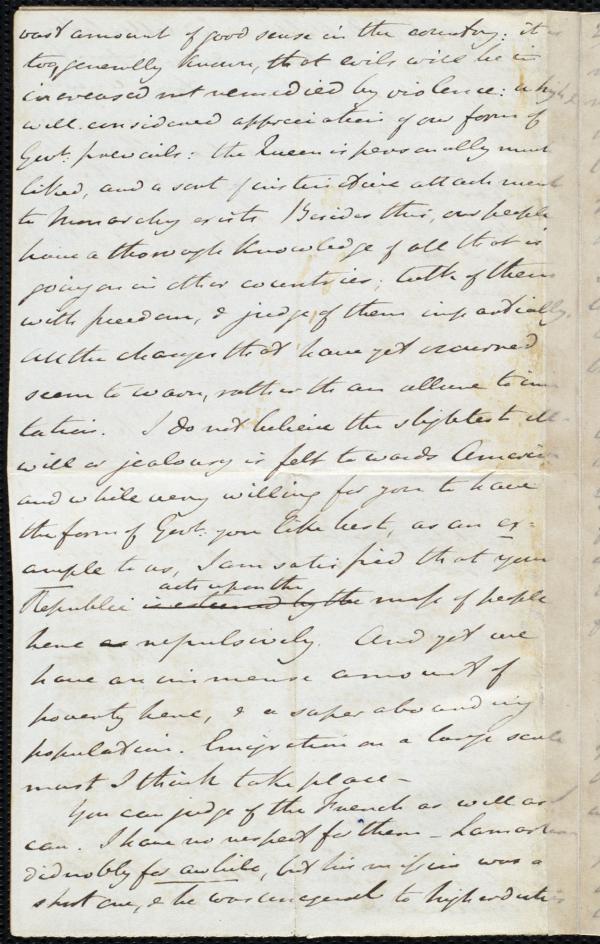 vast amount of good sense in the country: it is
too generally known, that evils will be in
increased not remedied by violence: a high &
well considered appreciation of our form of
Govt. prevails: the Queen is personally much
liked, and a sort of instinctive attachment
to Monarchy exists. Besides this, our people
have a thorough knowledge of all that is
going on in other countries; talk of them
with freedom, & judge of them impartially.
All the changes that have yet occurred
seem to warn, rather than allure to imi
tation. I do not believe the slightest ill-
will or jealousy is felt towards America
and while very willing for you to have
the form of Govt. you like best, as an ex-
ample to us, I am satisfied that your
acts upon the
Republic is esteemed by the mass of people
here as repulsively. And yet we
have an immense amount of
poverty here, & a superabounding
population. Emigration on a large scale
must I think take place –
You can judge of the French as well as I
can. I have no respect for them – Lamartine
did nobly for awhile, but his mission was a
short one, & he was unequal to high duties